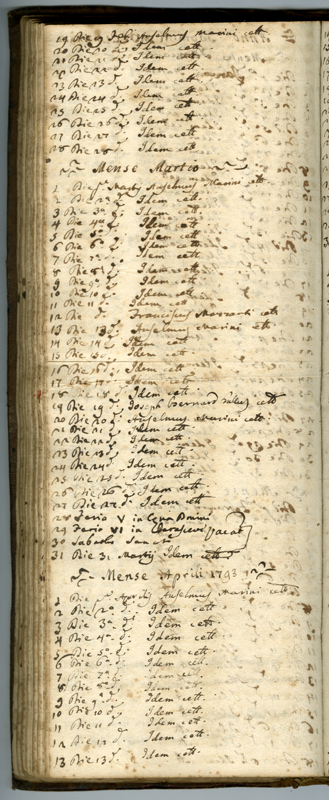 19 Die 19 d. Anselmus Marini cett.
20 Die 20 d. Idem cett.
21 Die 21 d. Idem cett.
22 Die 22 d. Idem cett.
23 Die 23 d. Idem cett.
24 Die 24 d. Idem cett.
25 Die 25 d. Idem cett.
26 Die 26 d. Idem cett.
27 Die 27 d. Idem cett.
28 Die 28 d. Idem cett.
Mense Martio
1 Die Martij Anselmus Marini cett.
2 Die 2ª d. Idem cett.
3 Die 3ª d. Idem cett.
4 Die 4ª d. Idem cett.
5 Die 5ª d. Idem cett.
6 Die 6ª d. Idem cett.
7 Die 7ª d. Idem cett.
8 Die 8ª d. Idem cett.
9 Die 9ª d. Idem cett.
10 Die 10 d. Idem cett.
11 Die 11 d. Idem cett.
12 Die d. Franciscus cett.
13 Die 13 d. Anselmus Marini cett.
14 Die 14 d. Idem cett.
15 Die 15 d. Idem cett.
16 Die 16 d. Idem cett.
17 Die 17 d. Idem cett.
18 Die 18 d. Idem cett.
19 Die 19 d. Joseph Bernard cett.
20 Die 20 d. Anselmus Marini cett.
21 Die 21 d. Idem cett.
22 Die 22 d. Idem cett.
23 Die 23 d. Idem cett.
24 Die 24 d. Idem cett.
25 Die 25 d. Idem cett.
26 Die 26 d. Idem cett.
27 Die 27 d. Idem cett.
28 Feria V in Cena Domini
29 Feria VI in Parasceve vacat
30 Sabato Sancto
31 Die 31 Martij Idem cett.
Mense Aprili 1793
1 Die Aprilis Anselmus Marini cett.
2 Die 2ª d. Idem cett.
3 Die 3ª d. Idem cett.
4 Die 4ª d. Idem cett.
5 Die 5ª d. Idem cett.
6 Die 6ª d. Idem cett.
7 Die 7ª d. Idem cett.
8 Die 8ª d. Idem cett.
9 Die 9ª d. Idem cett.
10 Die 10 d. Idem cett.
11 Die 11 d. Idem cett.
12 Die 12 d. Idem cett.
13 Die 13 d. Idem cett.